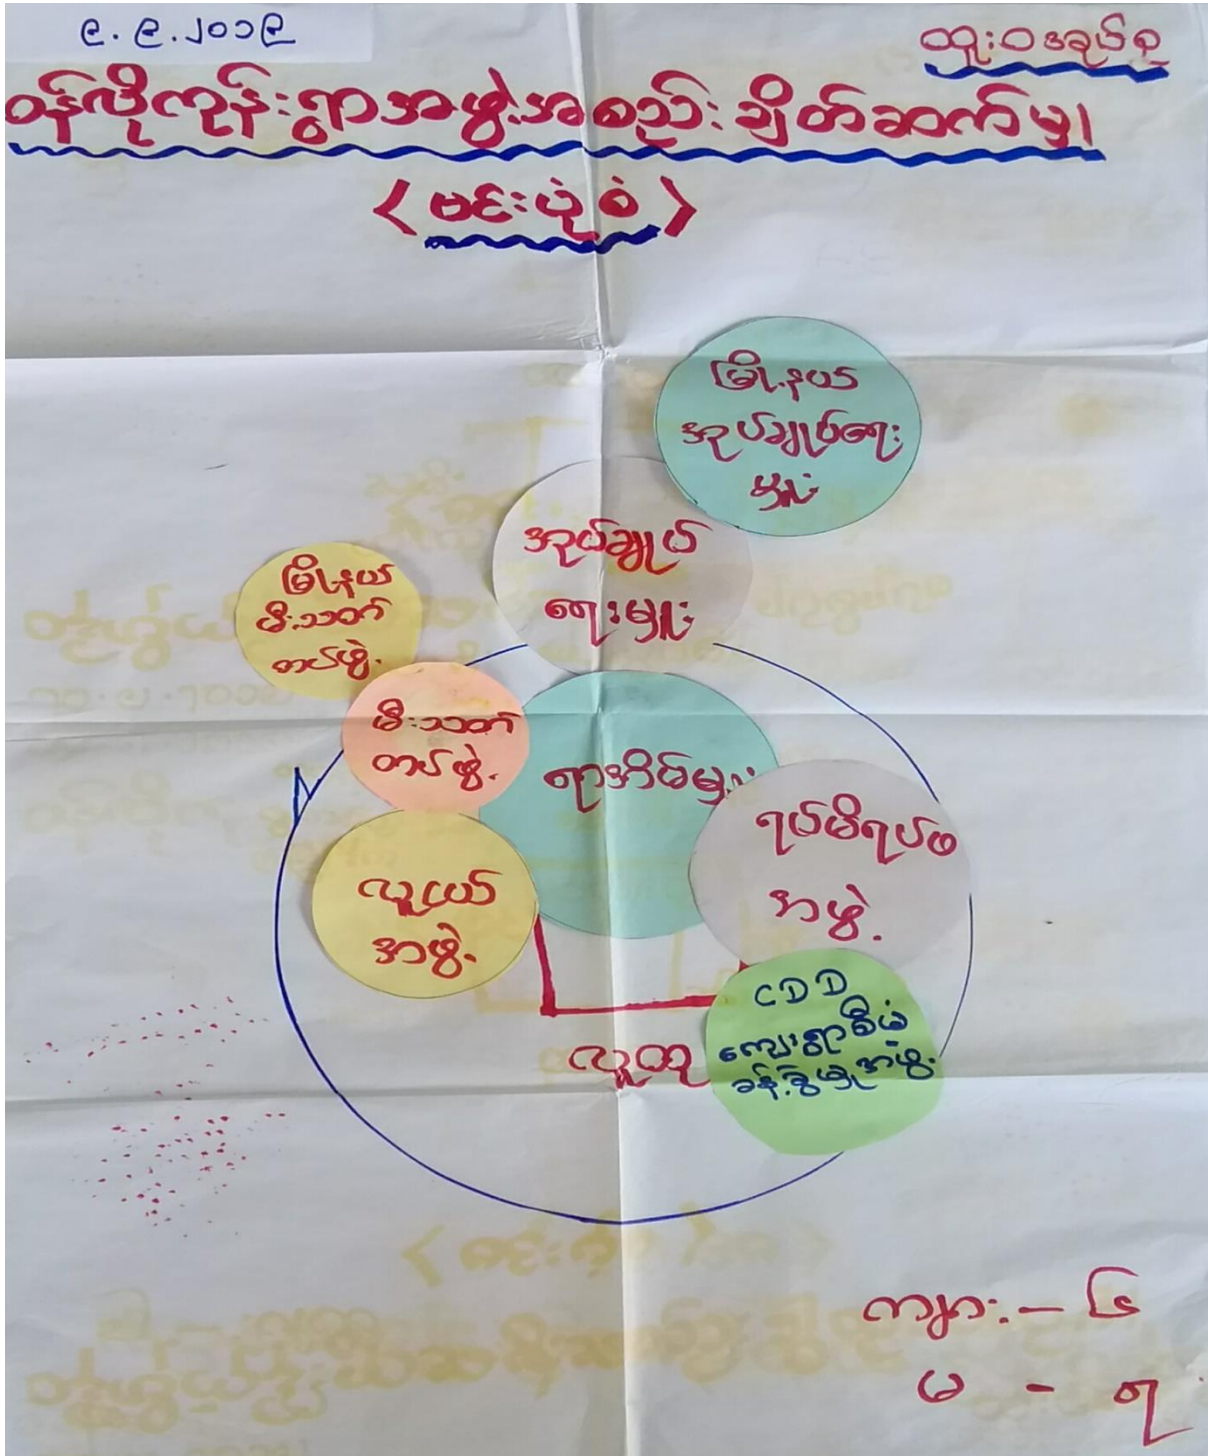 ၉.၉.၂၀၁၉
ထူးဝအုပ်စု
ဝန်လိုကုန်းရွာအဖွဲ့အစည်းချိတ်ဆက်မှု၊
(ဗင်းပုံစံ)
မြို့နယ်
အုပ်ချုပ်ရေး
မှူး
အုပ်ချုပ်
ရေးမှူး
မြို့နယ်
မီးသတ်
တပ်ဖွဲ့
မီးသတ်
တပ်ဖွဲ့
ရာအိမ်မှူး
ရပ်မိရပ်ဖ
အဖွဲ့
လူငယ်
အဖွဲ့
CDD
ကျေးရွာစီမံ
ခန့်ခွဲမှုအဖွဲ့
လူထု
ကျား - ၆
မ - ၅